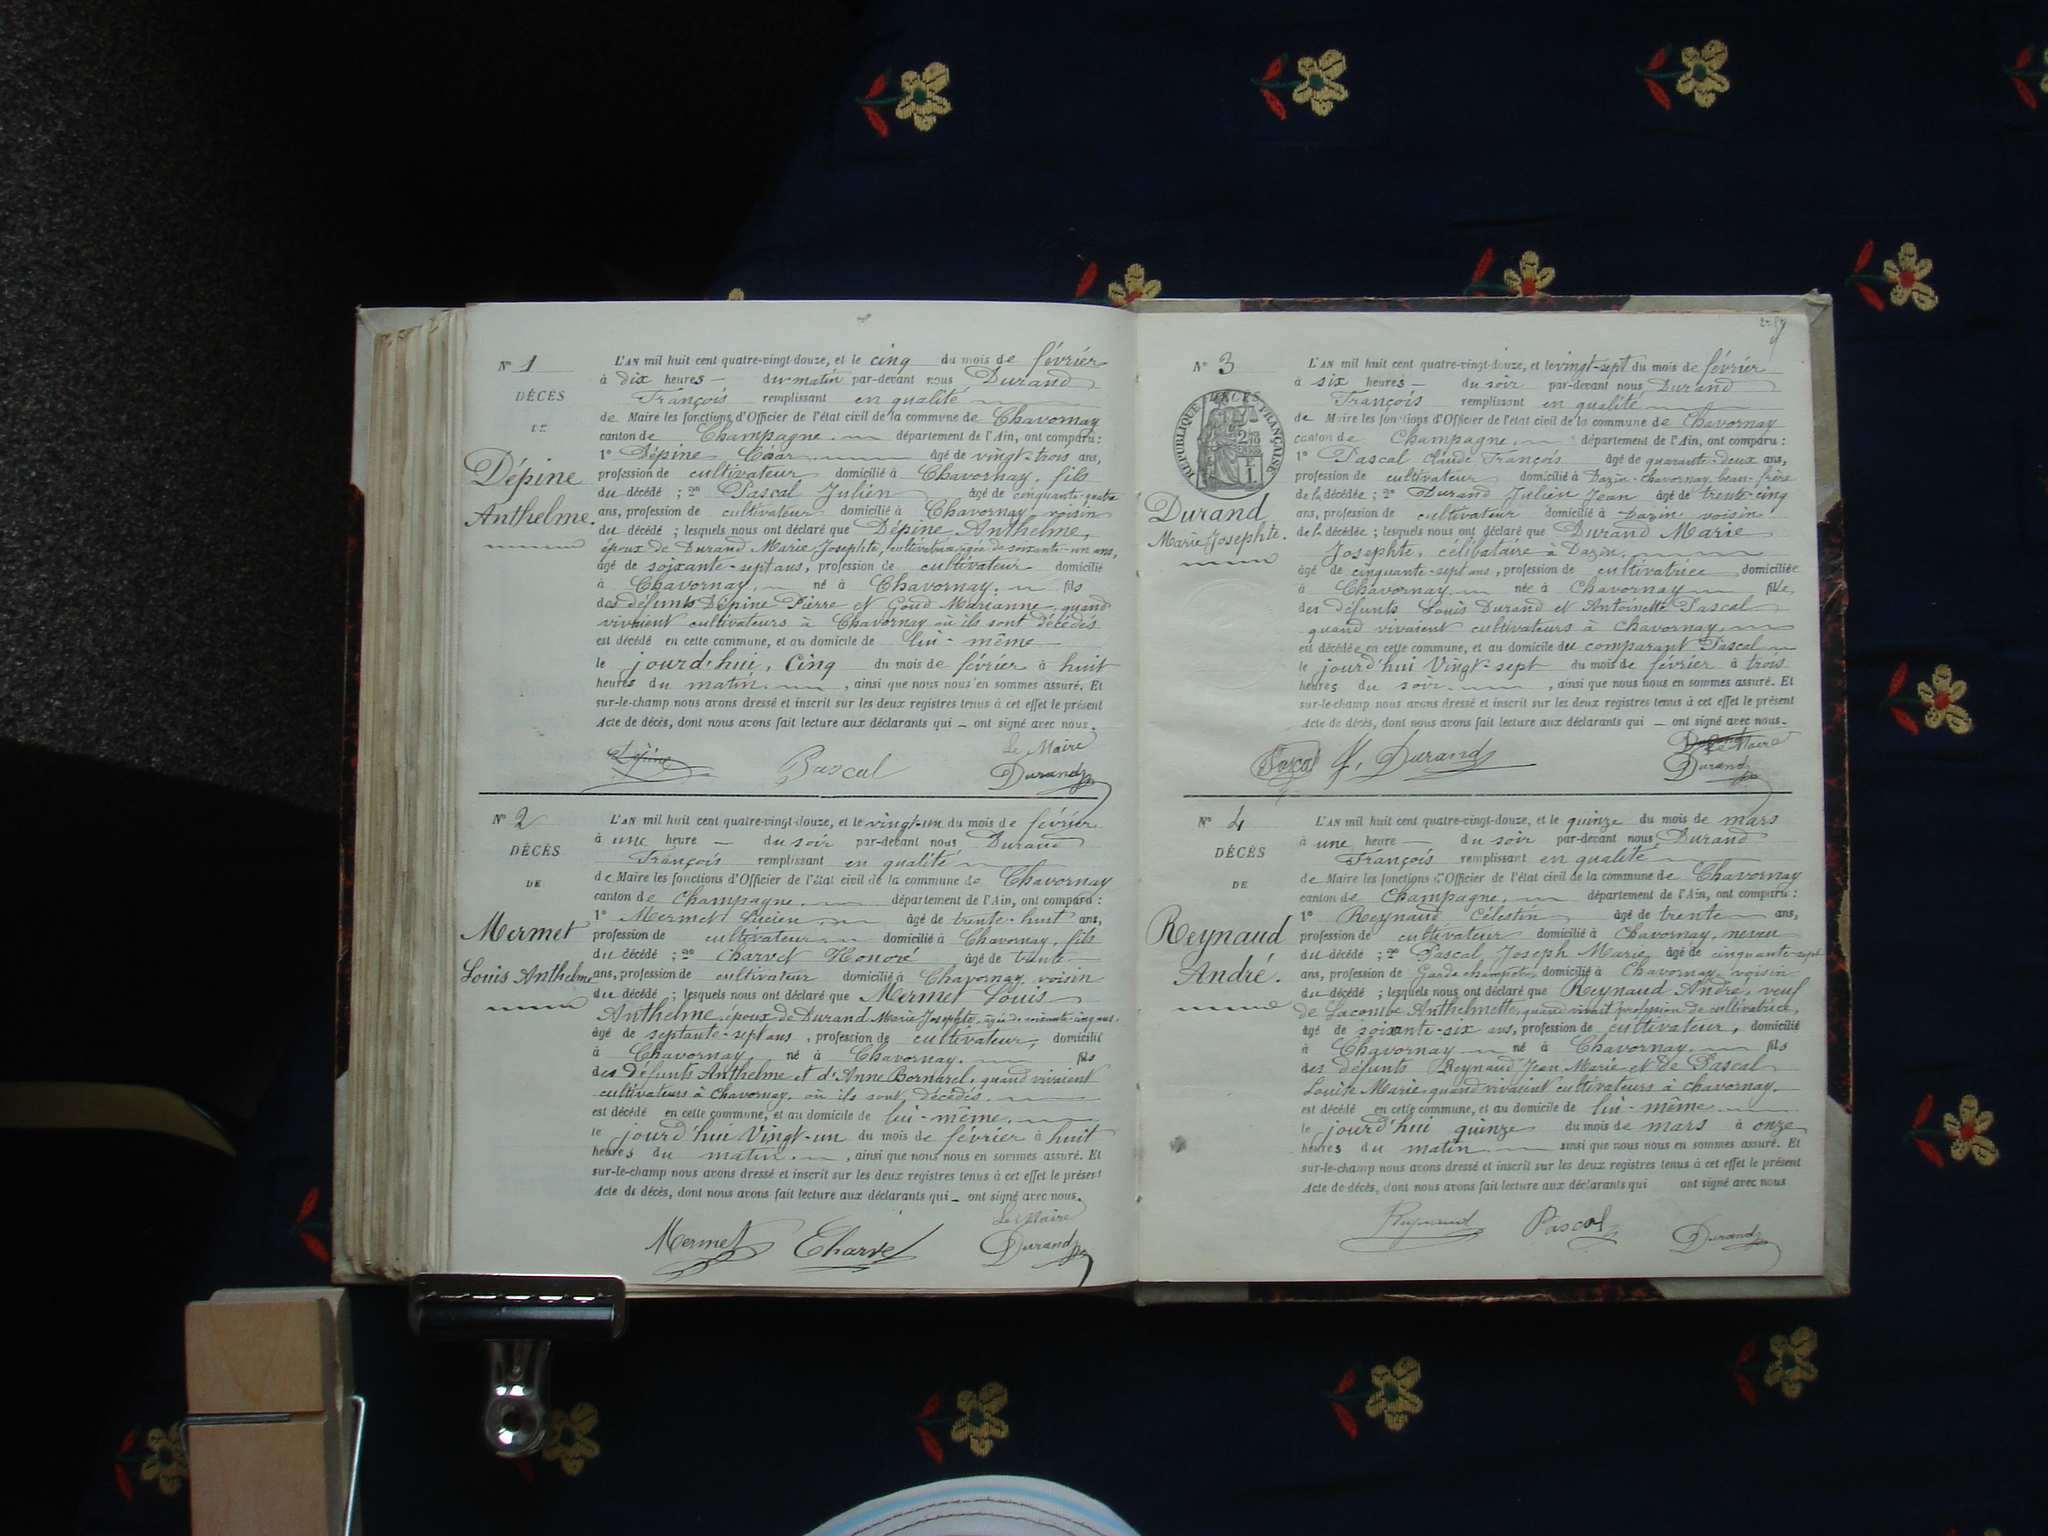 N° 1
DÉCÈS
DE
Dépine
Anthelme.
L'AN mil huit cent quatre-vingt-douze, et le cinq du mois de février
à dix heures — du matin par-devant nous Durand
François remplissant en qualité
de Maire les fonctions d'Officier de l'état civil de la commune de Chavornay
canton de Champagne. département de l'Ain, ont comparu :
1° Dépine César âgé de vingt-trois ans,
profession de cultivateur domicilié à Chavornay, fils
du décédé ; 2° Pascal Julien âgé de cinquante-quatre
ans, profession de cultivateur domicilié à Chavornay voisin
du décédé ; lesquels nous ont déclaré que Dépine Anthelme,
époux de Durand Marie Josephte, cultivatrice âgée de soixante-un ans,
âgé de soixante-sept ans, profession de cultivateur domicilié
à Chavornay, né à Chavornay. fils
des défunts Dépine Pierre et Goud Marianne, quand
vivaient cultivateurs à Chavornay où ils sont décédés
est décédé en cette commune, et au domicile de lui-même
le jourd'hui, cinq du mois de février à huit
heures du matin. , ainsi que nous nous en sommes assuré. Et
sur-le-champ nous avons dressé et inscrit sur les deux registres tenus à cet effet le présent
Acte de décès, dont nous avons fait lecture aux déclarants qui — ont signé avec nous.
Le Maire
Dépine Pascal Durand
N° 2
DÉCÈS
DE
Mermet
Louis Anthelme
L'AN mil huit cent quatre-vingt-douze, et le vingt-un du mois de février
à une heure — du soir par-devant nous Durand
François remplissant en qualité
de Maire les fonctions d'Officier de l'état civil de la commune de Chavornay
canton de Champagne. département de l'Ain, ont comparu :
1° Mermet Lucien âgé de trente-huit ans,
profession de cultivateur domicilié à Chavornay, fils
du décédé ; 2° Charvet Honoré âgé de trente
ans, profession de cultivateur domicilié à Chavornay voisin
du décédé ; lesquels nous ont déclaré que Mermet Louis
Anthelme, époux de Durand Marie Josephte, âgée de soixante-cinq ans,
âgé de septante-sept ans, profession de cultivateur, domicilié
à Chavornay, né à Chavornay. fils
des défunts Anthelme et d'Anne Bornarel, quand vivaient
cultivateurs à Chavornay, où ils sont décédés.
est décédé en cette commune, et au domicile de lui-même.
le jourd'hui vingt-un du mois de février à huit
heures du matin. , ainsi que nous nous en sommes assuré. Et
sur-le-champ nous avons dressé et inscrit sur les deux registres tenus à cet effet le présent
Acte de décès, dont nous avons fait lecture aux déclarants qui — ont signé avec nous.
Le Maire
Mermet Charvet Durand
N° 3
RÉPUBLIQUE FRANÇAISE
DÉCÈS
Durand
Marie Josephte.
L'AN mil huit cent quatre-vingt-douze, et le vingt-sept du mois de février
à six heures — du soir par-devant nous Durand
François remplissant en qualité
de Maire les fonctions d'Officier de l'état civil de la commune de Chavornay
canton de Champagne. département de l'Ain, ont comparu :
1° Pascal Claude François âgé de quarante-deux ans,
profession de cultivateur domicilié à Dazin-Chavornay beau-frère
de la décédée ; 2° Durand Julien Jean âgé de trente-cinq
ans, profession de cultivateur domicilié à Dazin voisin
de la décédée ; lesquels nous ont déclaré que Durand Marie
Josephte, célibataire à Dazin,
âgée de cinquante-sept ans, profession de cultivatrice domiciliée
à Chavornay née à Chavornay fille
des défunts Louis Durand et Antoinette Pascal
quand vivaient cultivateurs à Chavornay,
est décédée en cette commune, et au domicile du comparant Pascal
le jourd'hui vingt-sept du mois de février à trois
heures du soir. , ainsi que nous nous en sommes assuré. Et
sur-le-champ nous avons dressé et inscrit sur les deux registres tenus à cet effet le présent
Acte de décès, dont nous avons fait lecture aux déclarants qui — ont signé avec nous.
Le Maire
Pascal J. Durand Durand
N° 4
DÉCÈS
DE
Reynaud
André.
L'AN mil huit cent quatre-vingt-douze, et le quinze du mois de mars
à une heure — du soir par-devant nous Durand
François remplissant en qualité
de Maire les fonctions d'Officier de l'état civil de la commune de Chavornay
canton de Champagne. département de l'Ain, ont comparu :
1° Reynaud Célestin âgé de trente ans,
profession de cultivateur domicilié à Chavornay, neveu
du décédé ; 2° Pascal Joseph Marie âgé de cinquante-sept
ans, profession de Garde champêtre, domicilié à Chavornay, voisin
du décédé ; lesquels nous ont déclaré que Reynaud André, veuf
de Lacombe Anthelmette, quand vivait profession de cultivatrice,
âgé de soixante-six ans, profession de cultivateur, domicilié
à Chavornay né à Chavornay. fils
des défunts Reynaud Jean Marie et de Pascal
Louise Marie, quand vivaient cultivateurs à Chavornay.
est décédé en cette commune, et au domicile de lui-même
le jourd'hui quinze du mois de mars à onze
heures du matin ainsi que nous nous en sommes assuré. Et
sur-le-champ nous avons dressé et inscrit sur les deux registres tenus à cet effet le présent
Acte de décès, dont nous avons fait lecture aux déclarants qui ont signé avec nous
Reynaud Pascal Durand